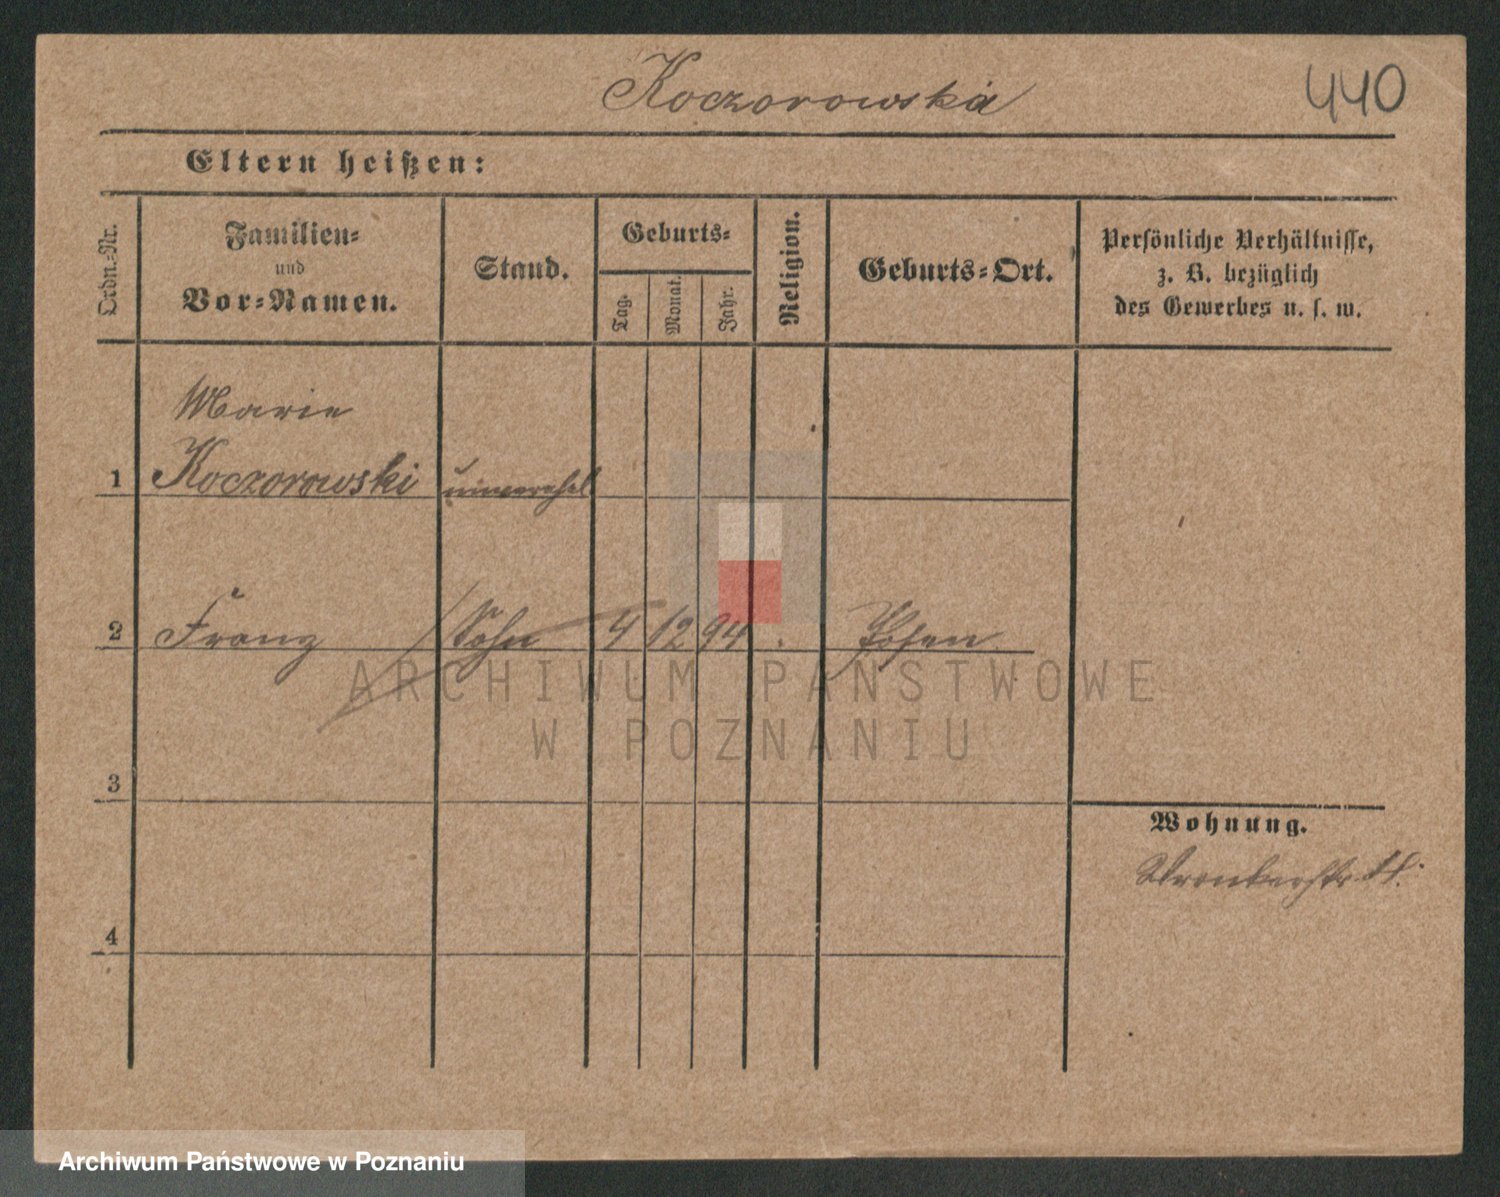 Koczorowska
440
Eltern heißen:
Ordn.-Nr.
Familien-
und
Vor-Namen.
Stand.
Geburts-
Tag.
Monat.
Jahr.
Religion.
Geburts-Ort.
Persönliche Verhältnisse,
z. B. bezüglich
des Gewerbes u. s. w.
Marie
1 Koczorowski unverehel
2 Franz Sohn 4 12 94 Posen
ARCHIWUM PAŃSTWOWE
W POZNANIU
3
Wohnung.
Wronkerstr
4
Archiwum Państwowe w Poznaniu